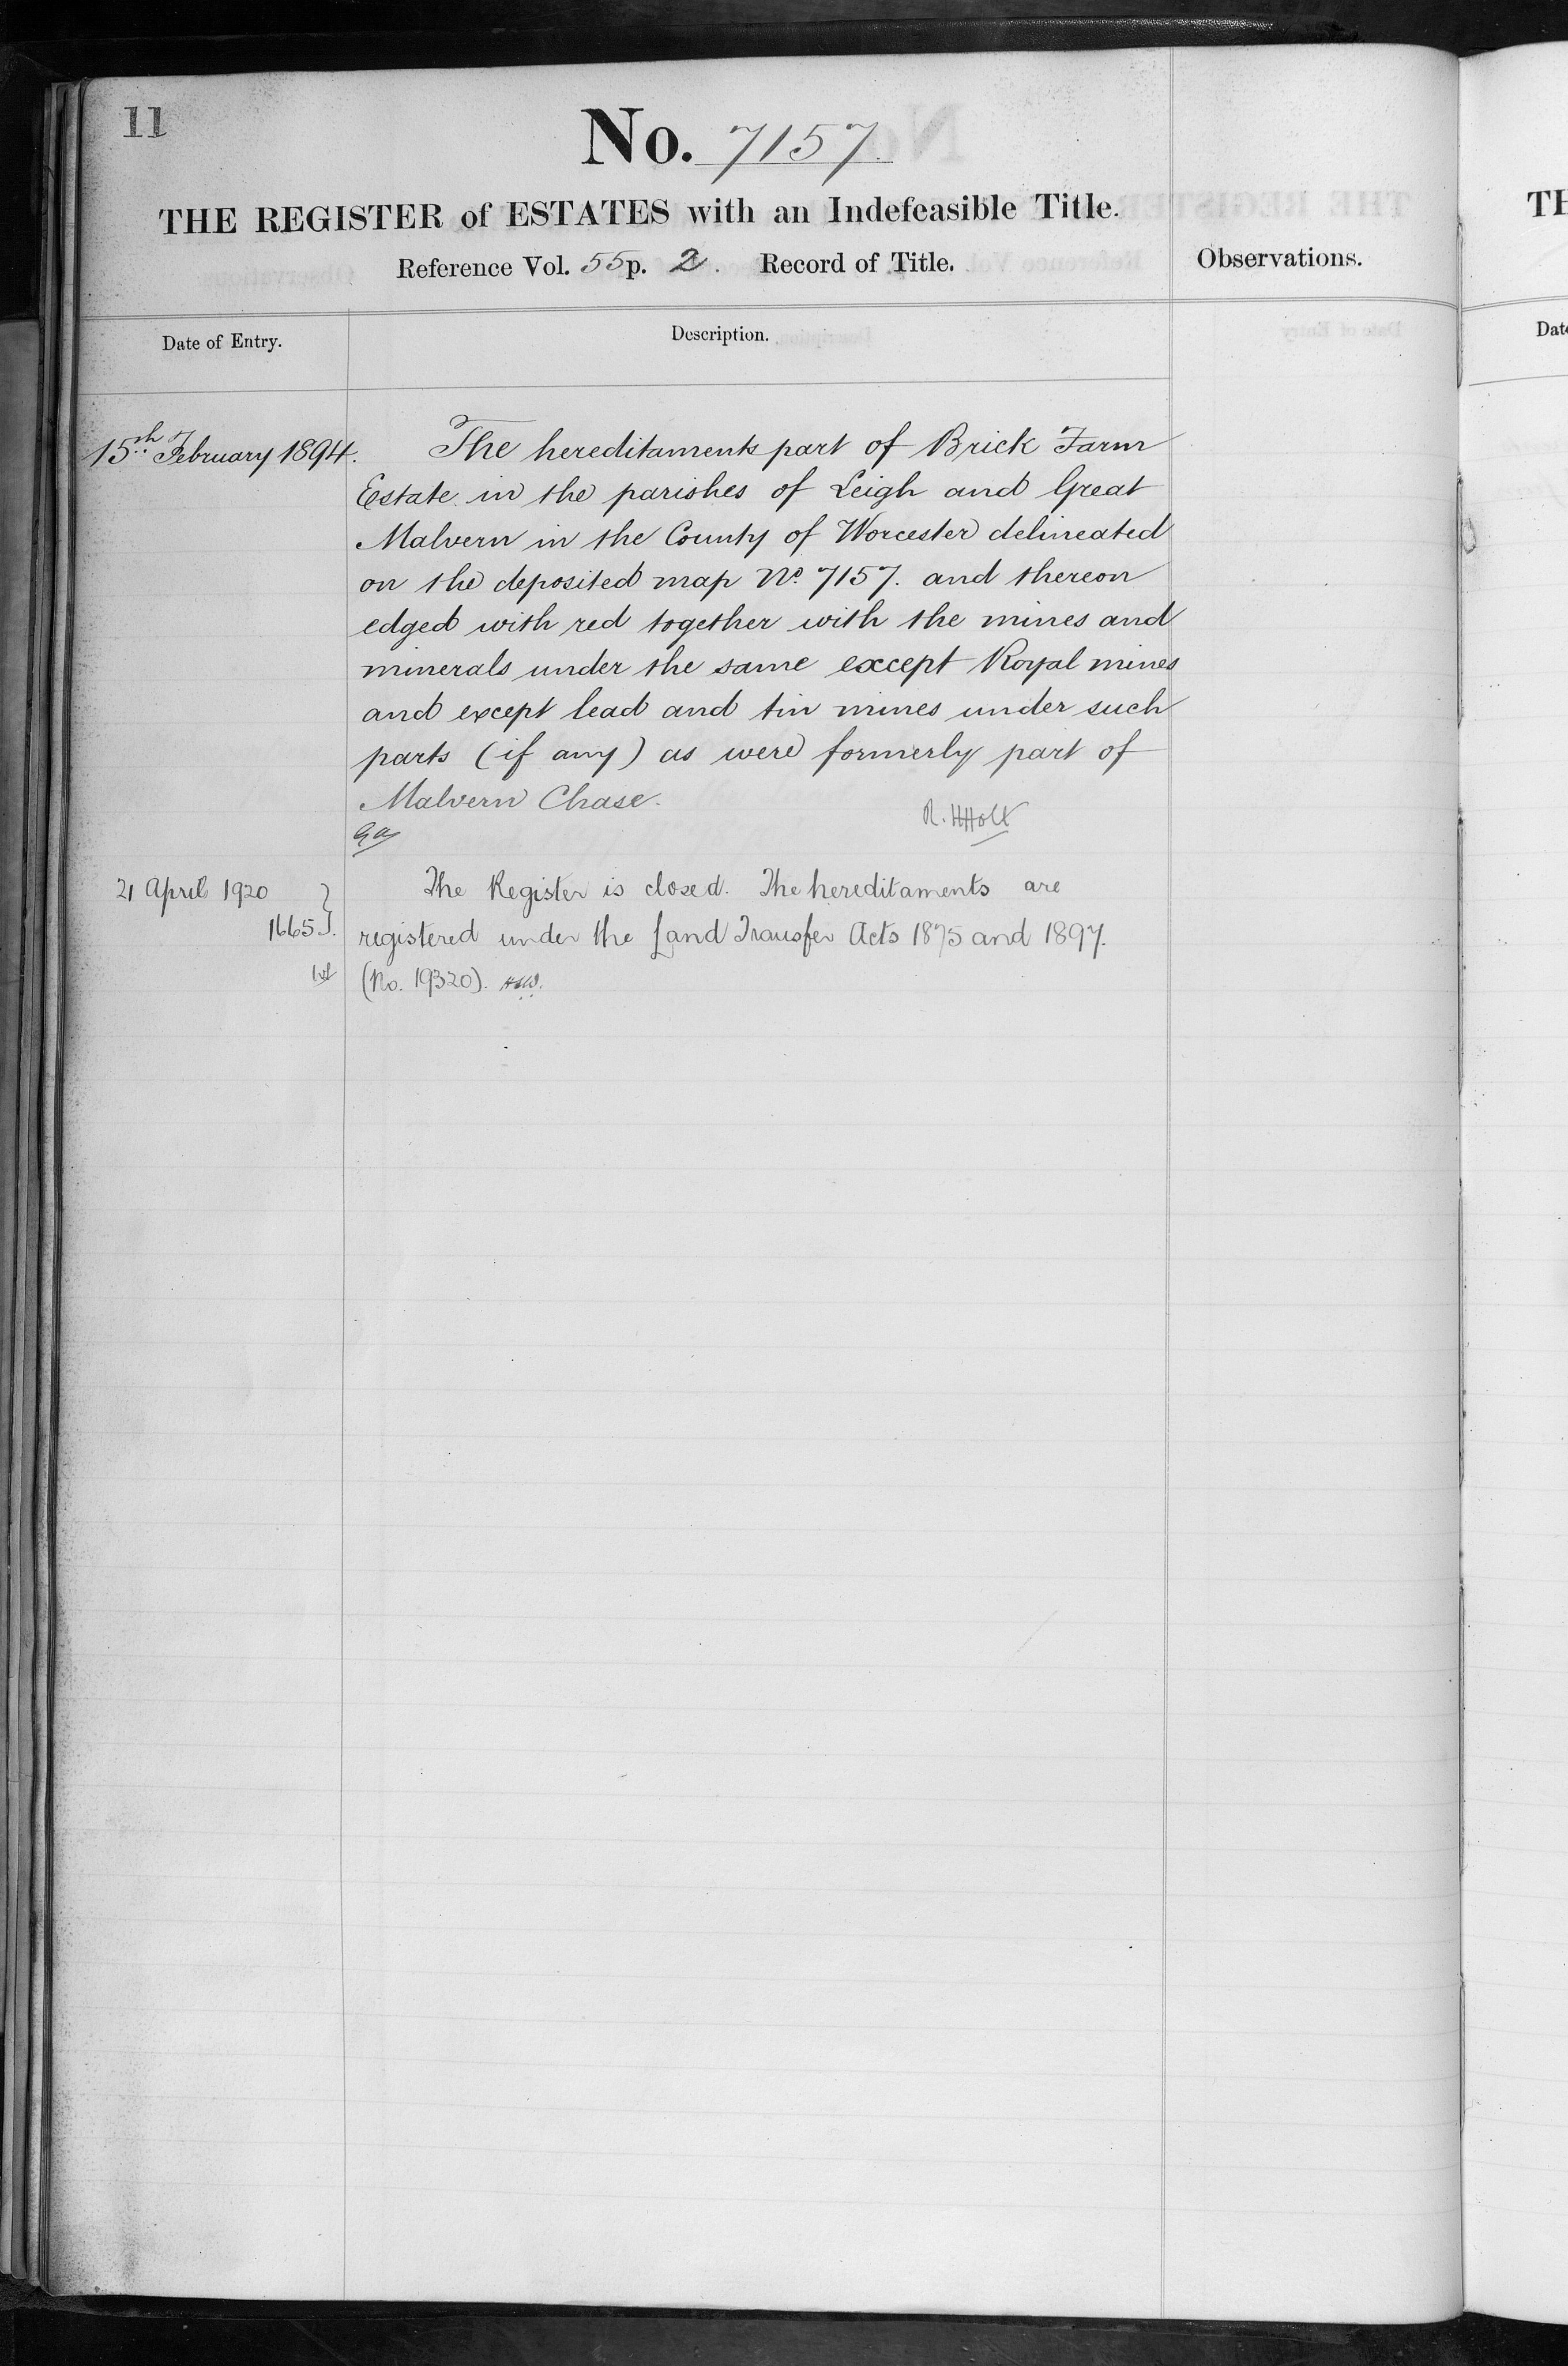 11
No. 7157.
THE REGISTER of ESTATES with an Indefeasible Title.
Reference Vol. 55 p. 2. Record of Title.
Observations.
Date of Entry.
Description.
15th February 1894.
The hereditaments part of Brick Farm
Estate in the parishes of Leigh and Great
Malvern in the County of Worcester delineated
on the deposited map No. 7157. and thereon
edged with red together with the mines and
minerals under the same except Royal mines
and except lead and tin mines under such
parts (if any) as were formerly part of
Malvern Chase.
R. H Holt
21 April 1920
1665.
The Register is closed. The hereditaments are
registered under the Land Transfer Acts 1875 and 1897.
(No. 19320).
TH
Date